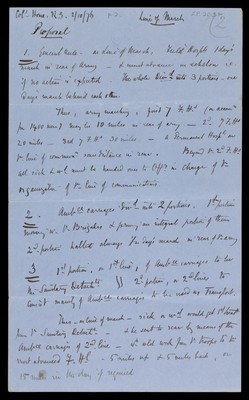 Col. Home R.E. 2/10/76 Line of March
Proposal
1. General Rule. on Line of March, Field Hosp^ls 1 day's
march in rear of Army - & must advance in echelon is
if no action is expected. The whole div^d into 3 portions, one
day's march behind each other.
Thus, army marching, first 7 F.H^s (in accom^n
for 1400 men) may be 10 miles in rear of army - 2^nd 7 F.H^s
20 miles - 3rd 7 F.H^s 30 miles - & Permanent Hosp^ls on
line of comm^n some distance in rear. Beyond the 2^nd F.H^s
all sick & w^d must be handed over to Off^rs in charge of the
organization of the line of communications.
2. Amb^ce carriages div^d into 2 portions. 1^st portion
moving w. the Brigades & forming an integral portion of them
2^nd portion halted always 1/2 day's march in rear of the army
3 1^st portion, or 1^st line, of Amb^ce carriages to be
the Sanitary Detach^ts 2^d portion, or 2^d line to
consist mainly of Amb^ce carriages to be used as Transport.
Thus - in line of march - sick or w^d would
from the Sanitary Detach^t - & be sent to rear by means of the
Amb^ce carriages of 2^nd line - wh. would work from the Troops to the
most advanced F.H^s - 5 miles up & 5 miles back, or
15 miles in the day if required